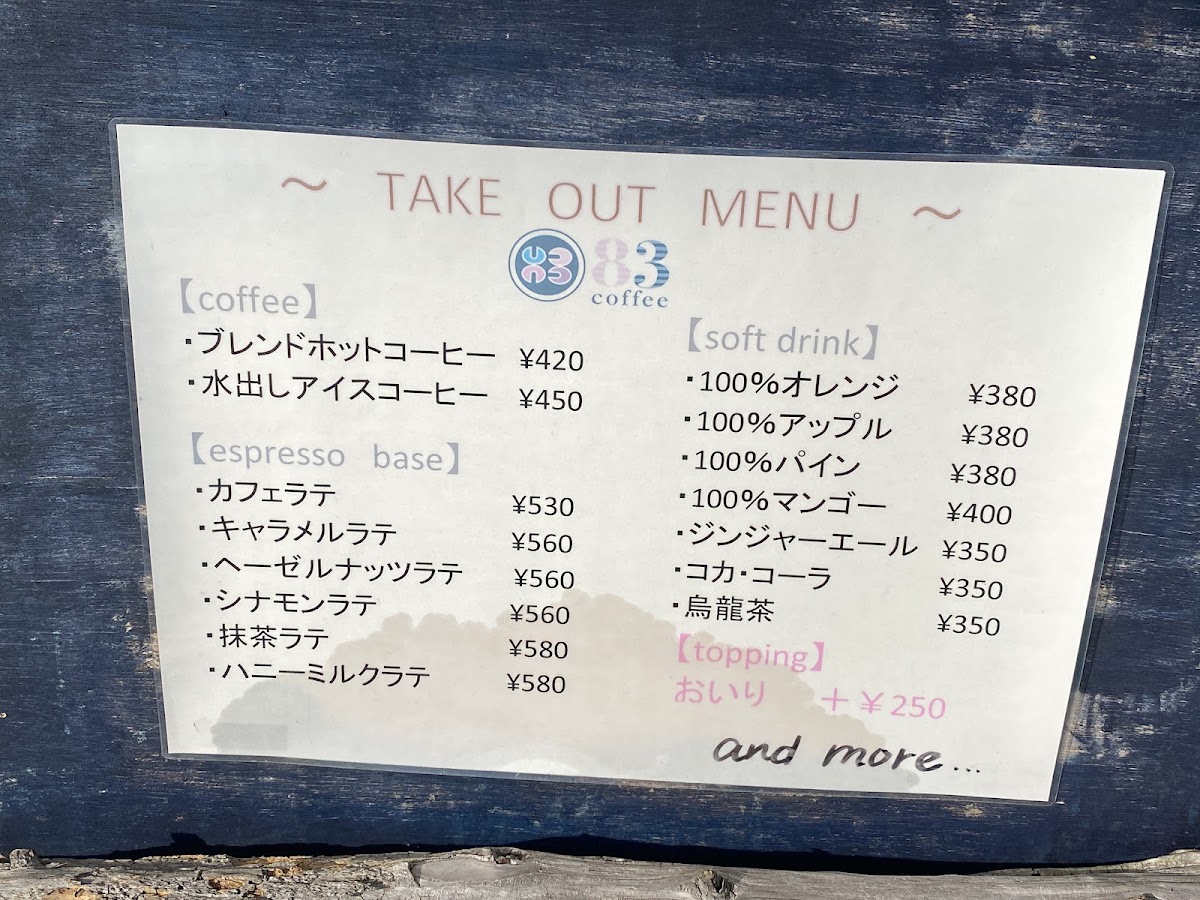 ～ TAKE OUT MENU ～
83
coffee
【coffee】
・ブレンドホットコーヒー ¥420
・水出しアイスコーヒー ¥450
【espresso base】
・カフェラテ ¥530
・キャラメルラテ ¥560
・ヘーゼルナッツラテ ¥560
・シナモンラテ ¥560
・抹茶ラテ ¥580
・ハニーミルクラテ ¥580
【soft drink】
・100％オレンジ ¥380
・100％アップル ¥380
・100％パイン ¥380
・100％マンゴー ¥400
・ジンジャーエール ¥350
・コカ・コーラ ¥350
・烏龍茶 ¥350
【topping】
おいり ＋￥250
and more...